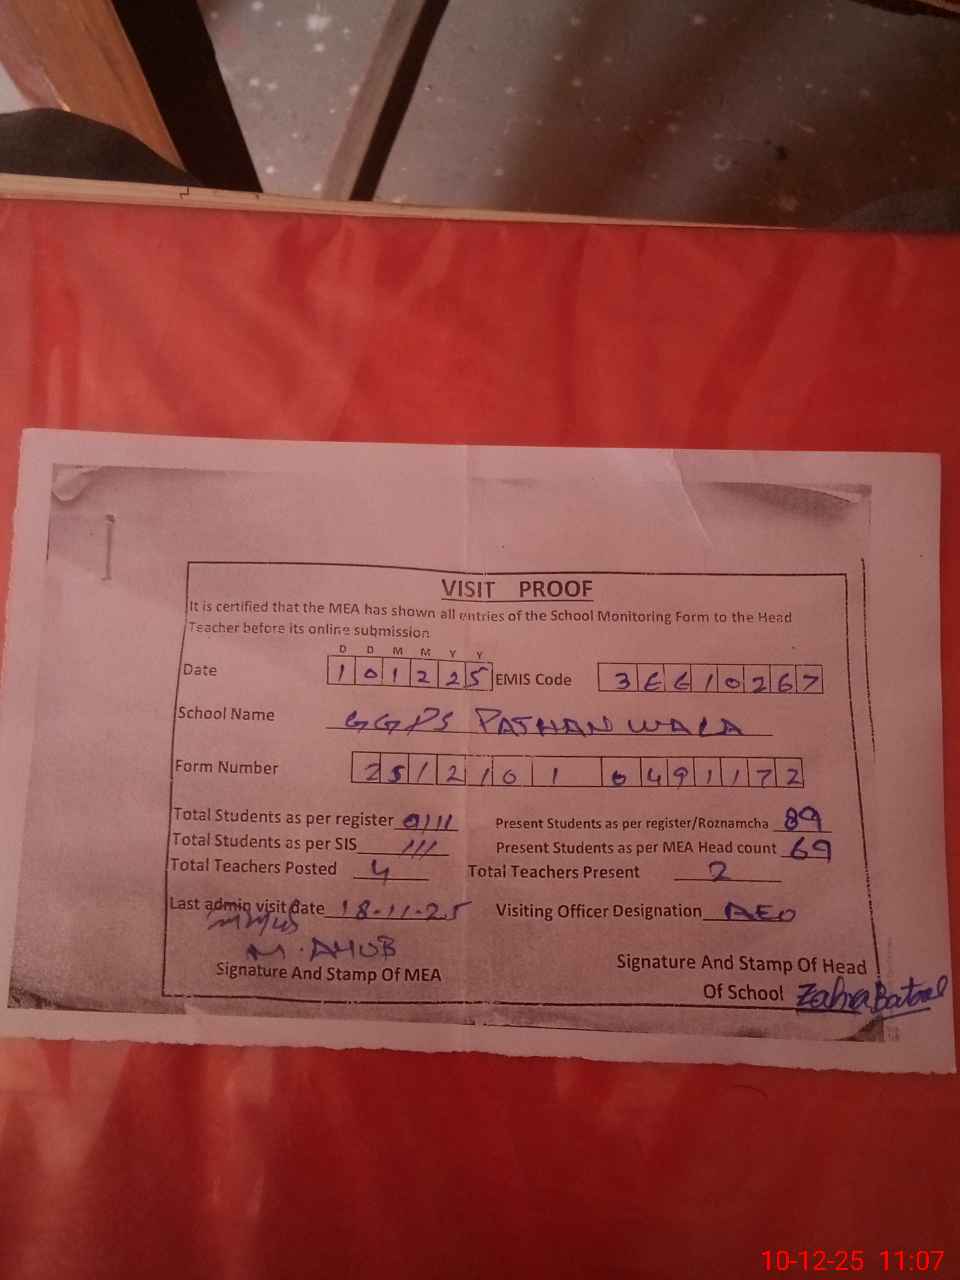 VISIT PROOF
It is certified that the MEA has shown all entries of the School Monitoring Form to the Head
Teacher before its online submission
D D M M Y Y
Date 101225 EMIS Code 36610267
School Name GGPS PATHAN WALA
Form Number 2512101 0491172
Total Students as per register 111 Present Students as per register/Roznamcha 89
Total Students as per SIS 111 Present Students as per MEA Head count 69
Total Teachers Posted 4 Total Teachers Present 2
Last admin visit date 18-11-25 Visiting Officer Designation AEO
Signature And Stamp Of MEA
Signature And Stamp Of Head
Of School Zahra Batool
10-12-25 11:07